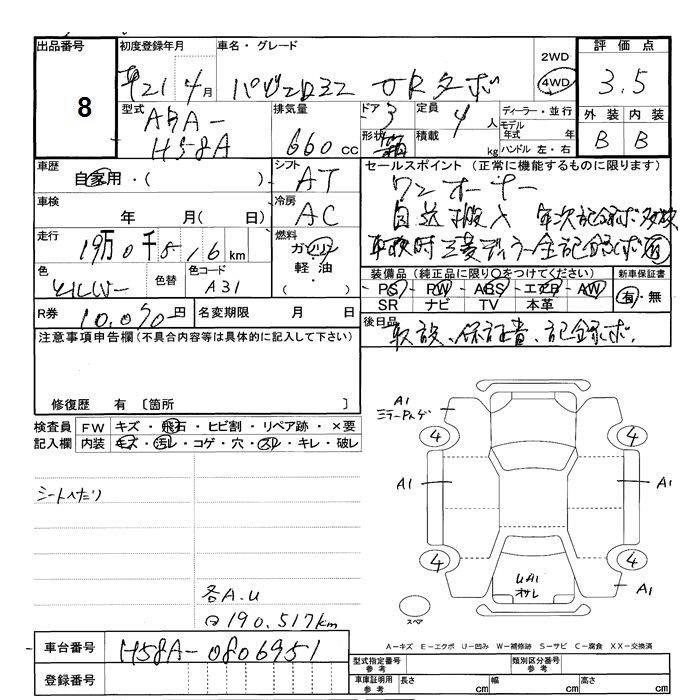 出品番号 初度登録年月 車名・グレード 評価点
8
平21年4月 パジェロミニ VRターボ 2WD 4WD 3.5
型式 排気量 ドア 定員 ディーラー・並行 外装 内装
ABA- H58A 660cc 3 4人 モデル年式 年 B B
形状 箱 積載 kg ハンドル 左・右
車歴 シフト セールスポイント(正常に機能するものに限ります)
自家用・( ) AT ワンオーナー
車検 冷房 自送搬入 年次記録簿多数
年 月(日) AC 車検時三菱ディーラー全記録簿有
走行 燃料
19万0千516km ガソリン 軽油・( )
色 色替 色コード 装備品(純正品に限り○をつけてください) 新車保証書
シルバー A31 PS・PW・ABS・エアB・AW 有・無
SR ナビ TV 本革
R券 10,090円 名変期限 月 日 後日品
取説、保証書、記録簿.
注意事項申告欄(不具合内容等は具体的に記入して下さい)
修復歴 有 〔箇所 〕
検査員 FW キズ・飛石・ヒビ割・リペア跡・×要
記入欄 内装 キズ・汚レ・コゲ・穴・スレ・キレ・破レ
シートへたり
各A.U
190,517km
A1
ミラー
4 4
A1 A1
4 4
UA1
オサレ
A1
スペア
A-キズ E-エクボ U-凹み W-補修跡 S-サビ C-腐食 XX-交換済
車台番号 H58A-0806951
登録番号
型式指定番号 参考 類別区分番号 参考
車庫証明用 参考 長さ cm 幅 cm 高さ cm